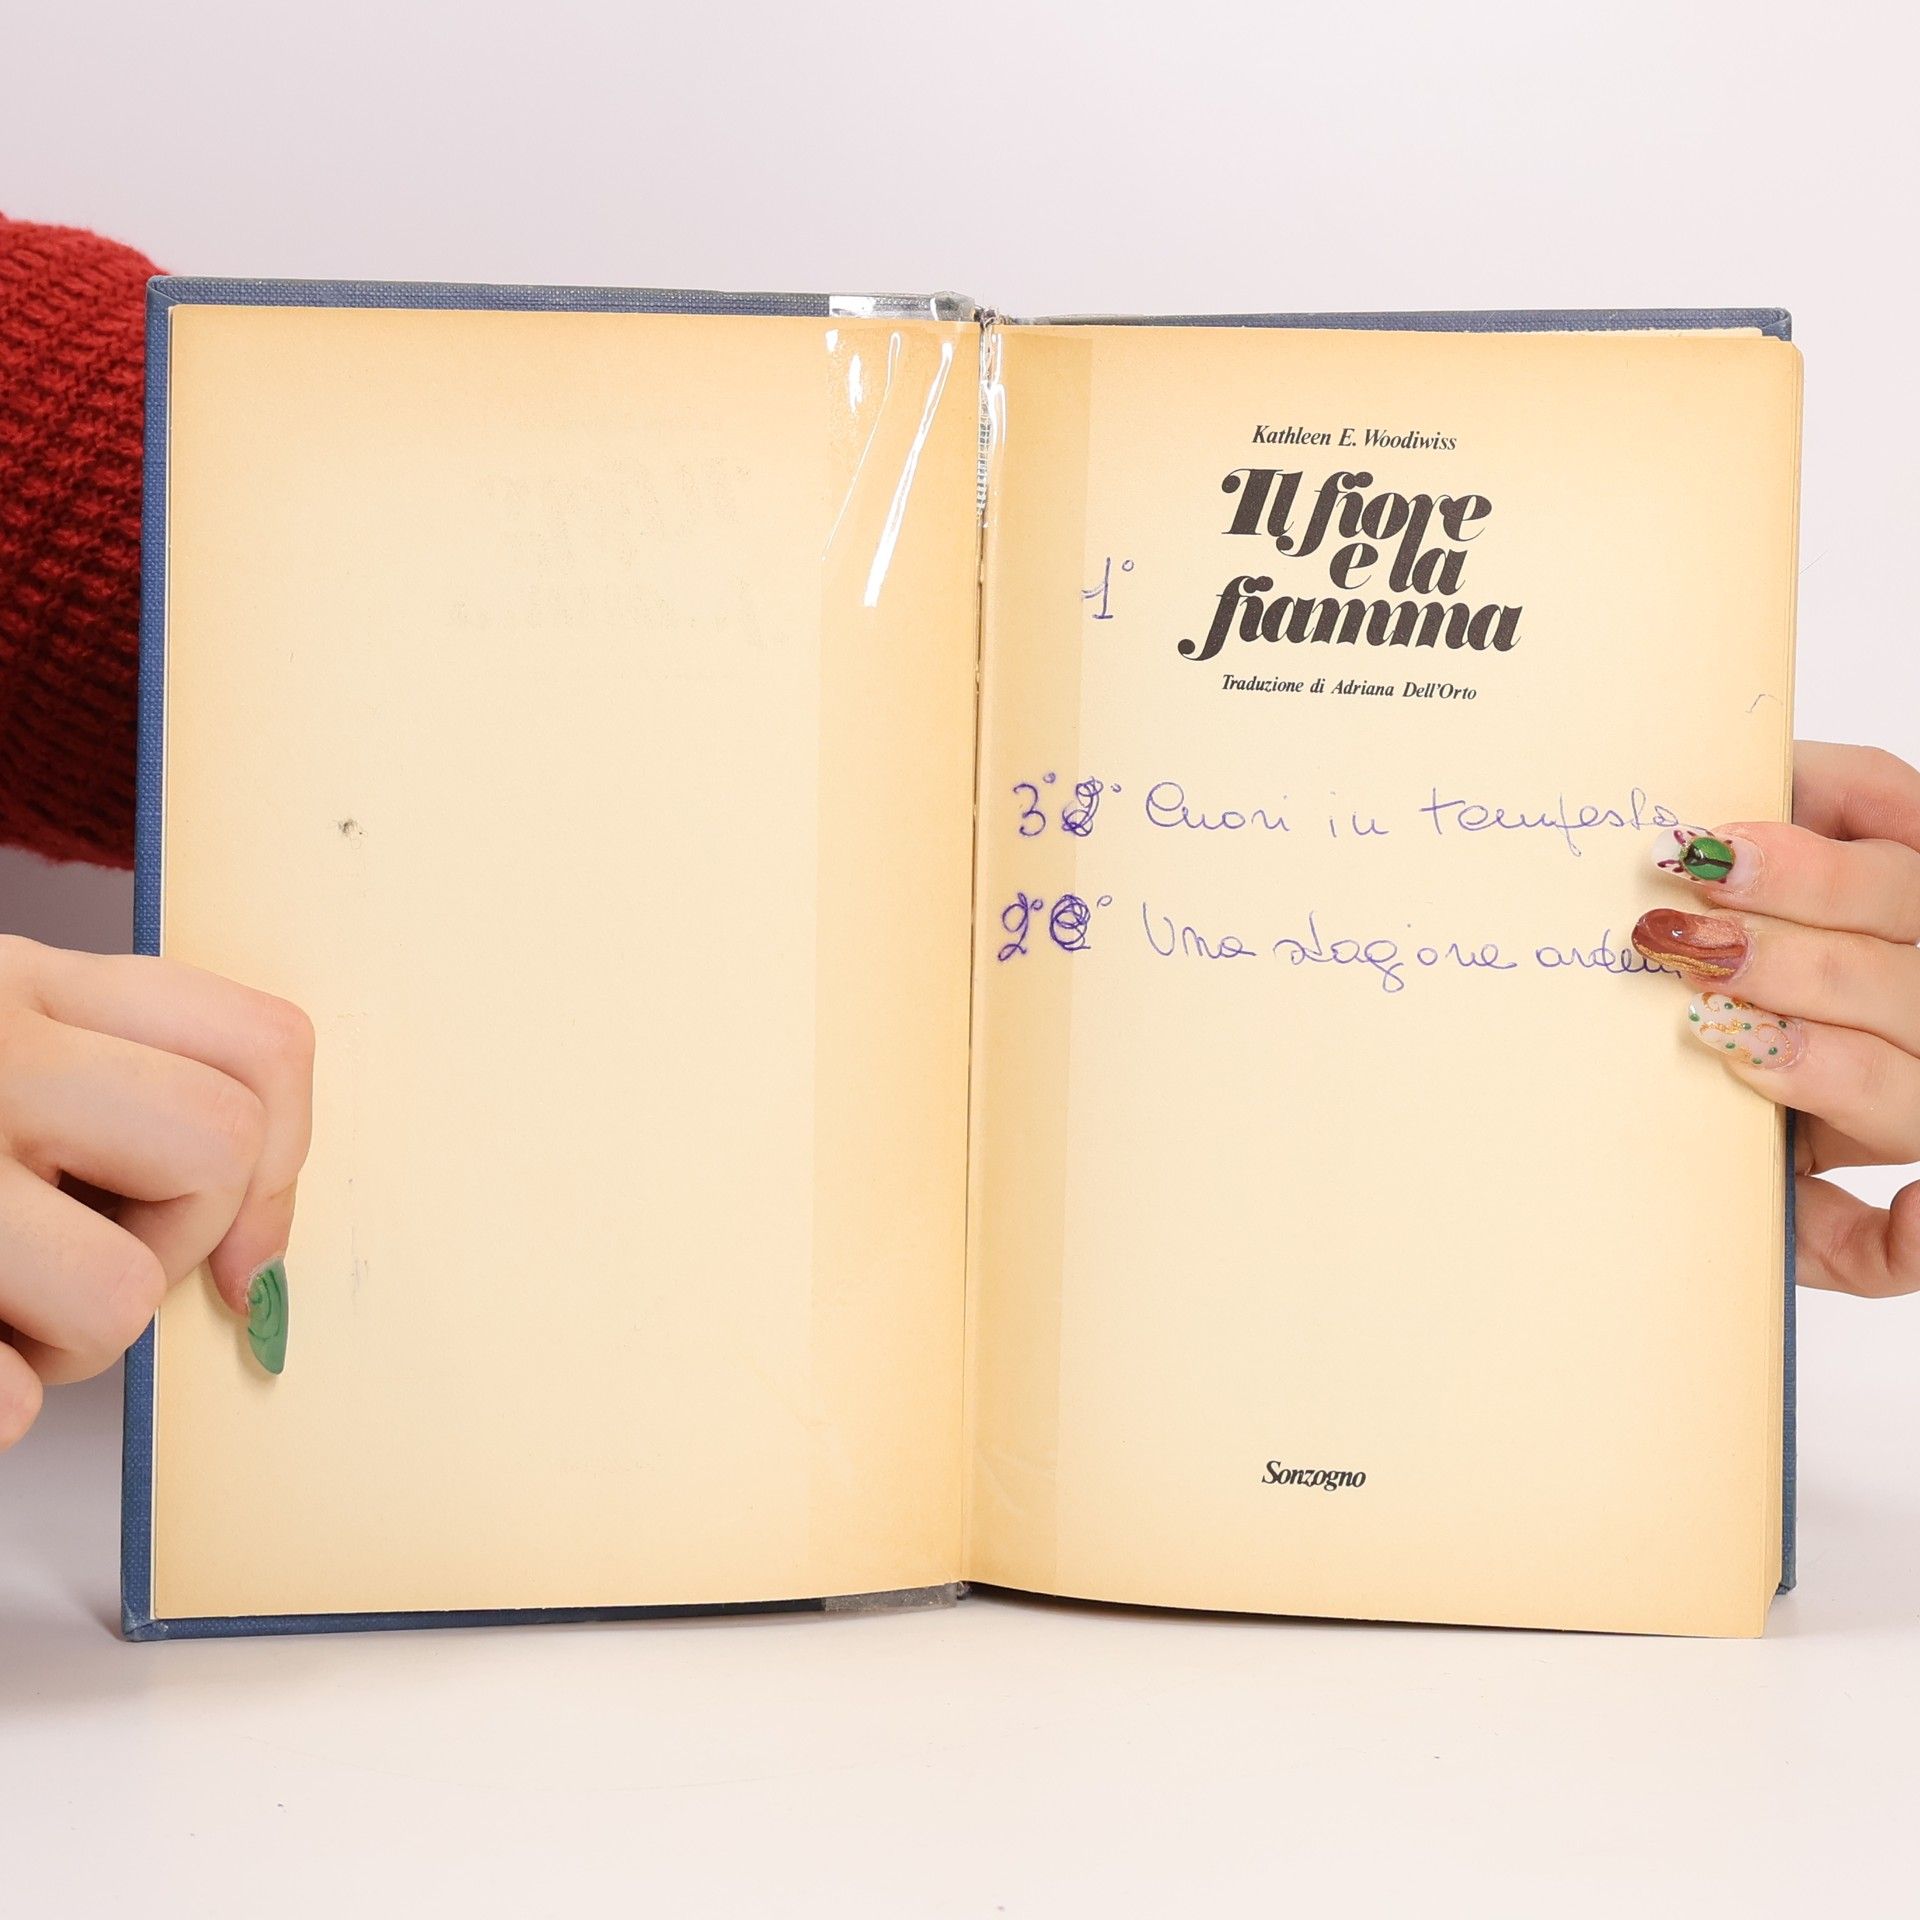 Kathleen E. Woodiwiss
Il fiore
e la
fiamma
1°
Traduzione di Adriana Dell'Orto
3° 2° Cuori in tempesta
2° Una stagione arden
Sonzogno